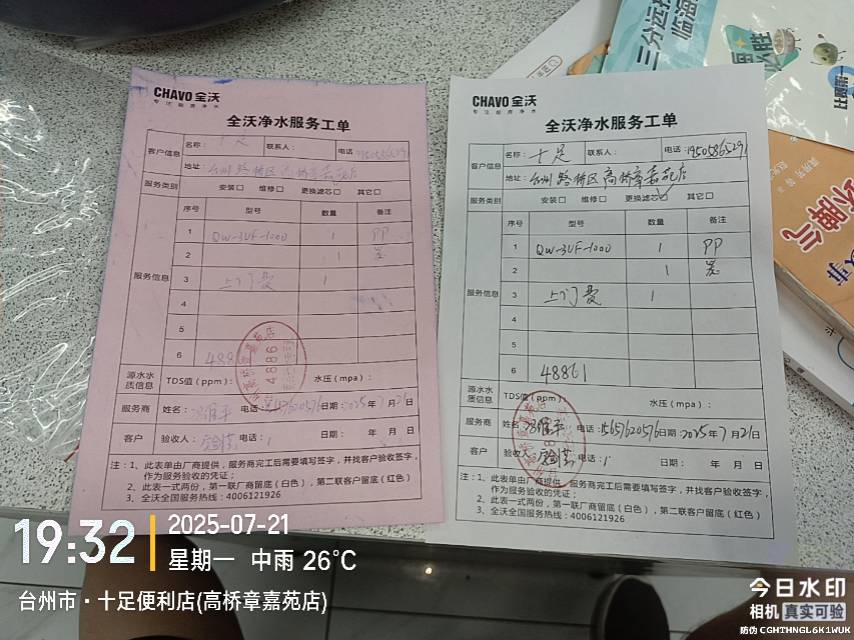 CHAVO 全沃
专注智能净水
全沃净水服务工单
客户信息 名称： 十足 联系人： 电话
地址： 台州路桥区
服务类别 安装□ 维修□ 更换滤芯□ 其它□
服务信息 序号 型号 数量 备注
1 QW-3UF-1000 1 PP
2 1 炭
3 上门费 1
4
5
6 4886
源水水质信息 TDS值（ppm）： 水压（mpa）：
服务商 姓名： 电话： 15657620576 日期： 2025年7月21日
客户 验收人： 电话： 日期： 年 月 日
注：1、此表单由厂商提供，服务商完工后需要填写签字，并找客户验收签字，
作为服务验收的凭证；
2、此表一式两份，第一联厂商留底（白色），第二联客户留底（红色）
3、全沃全国服务热线：4006121926
CHAVO 全沃
专注智能净水
全沃净水服务工单
客户信息 名称： 十足 联系人： 电话： 19505865291
地址： 台州路桥区高桥章嘉苑店
服务类别 安装□ 维修□ 更换滤芯☑ 其它□
服务信息 序号 型号 数量 备注
1 QW-3UF-1000 1 PP
2 1 炭
3 上门费 1
4
5
6 48861
源水水质信息 TDS值（ppm）： 水压（mpa）：
服务商 姓名 电话： 15657620576 日期： 2025年7月21日
客户 验收人 电话： 日期： 年 月 日
注：1、此表单由厂商提供，服务商完工后需要填写签字，并找客户验收签字，
作为服务验收的凭证；
2、此表一式两份，第一联厂商留底（白色），第二联客户留底（红色）
3、全沃全国服务热线：4006121926
三分远
临海
脾气
19:32
2025-07-21
星期一 中雨 26℃
台州市·十足便利店(高桥章嘉苑店)
今日水印
相机 真实可验
防伪 CGHTHNGL6K1WUK